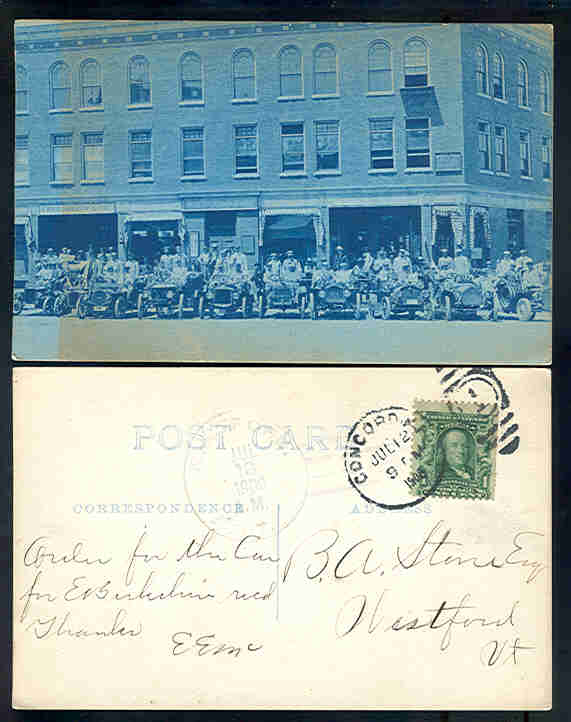 POST CARD
CONCORD
JUL 12
9
JUL
13
M.
CORRESPONDENCE
ADDRESS
Order for the Car
for E Berkshire recd
Thanks
EEMc
B. A. Stone Esq
Westford
Vt